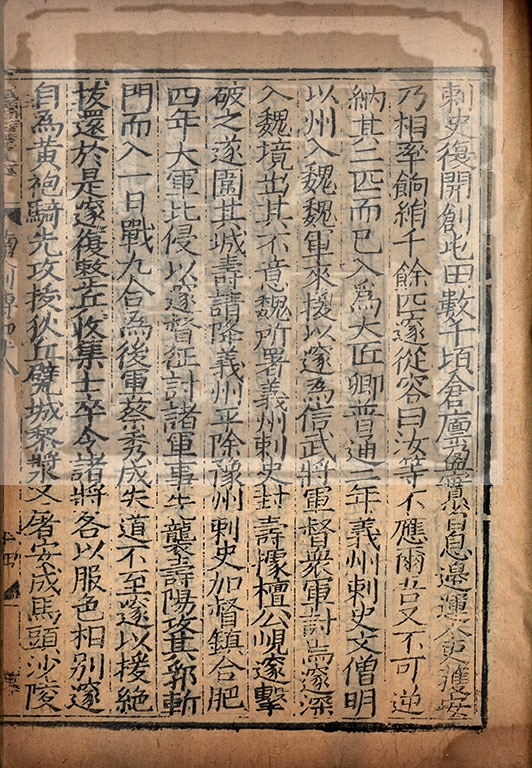 刺史復開創屯田數千頃倉廩盈實省息邊運人吏獲安
乃相率餉絹千餘匹邃從容曰汝等不應爾吾又不可逆
納其二匹而已入爲大匠卿普通二年義州刺史文僧明
以州入魏魏軍來援以邃爲信武將軍督衆軍討焉邃深
入魏境出其不意魏所署義州刺史封壽據檀公峴邃擊
破之遂圍其城壽請降義州平除豫州刺史加督鎮合肥
四年大軍北侵以邃督征討諸軍事先襲壽陽攻其郛斬
門而入一日戰九合為後軍蔡秀成失道不至邃以援絶
拔還於是邃復整兵收集士卒令諸將各以服色相別邃
自為黃袍騎先攻拔狄丘甓城黎漿又屠安成馬頭沙陵